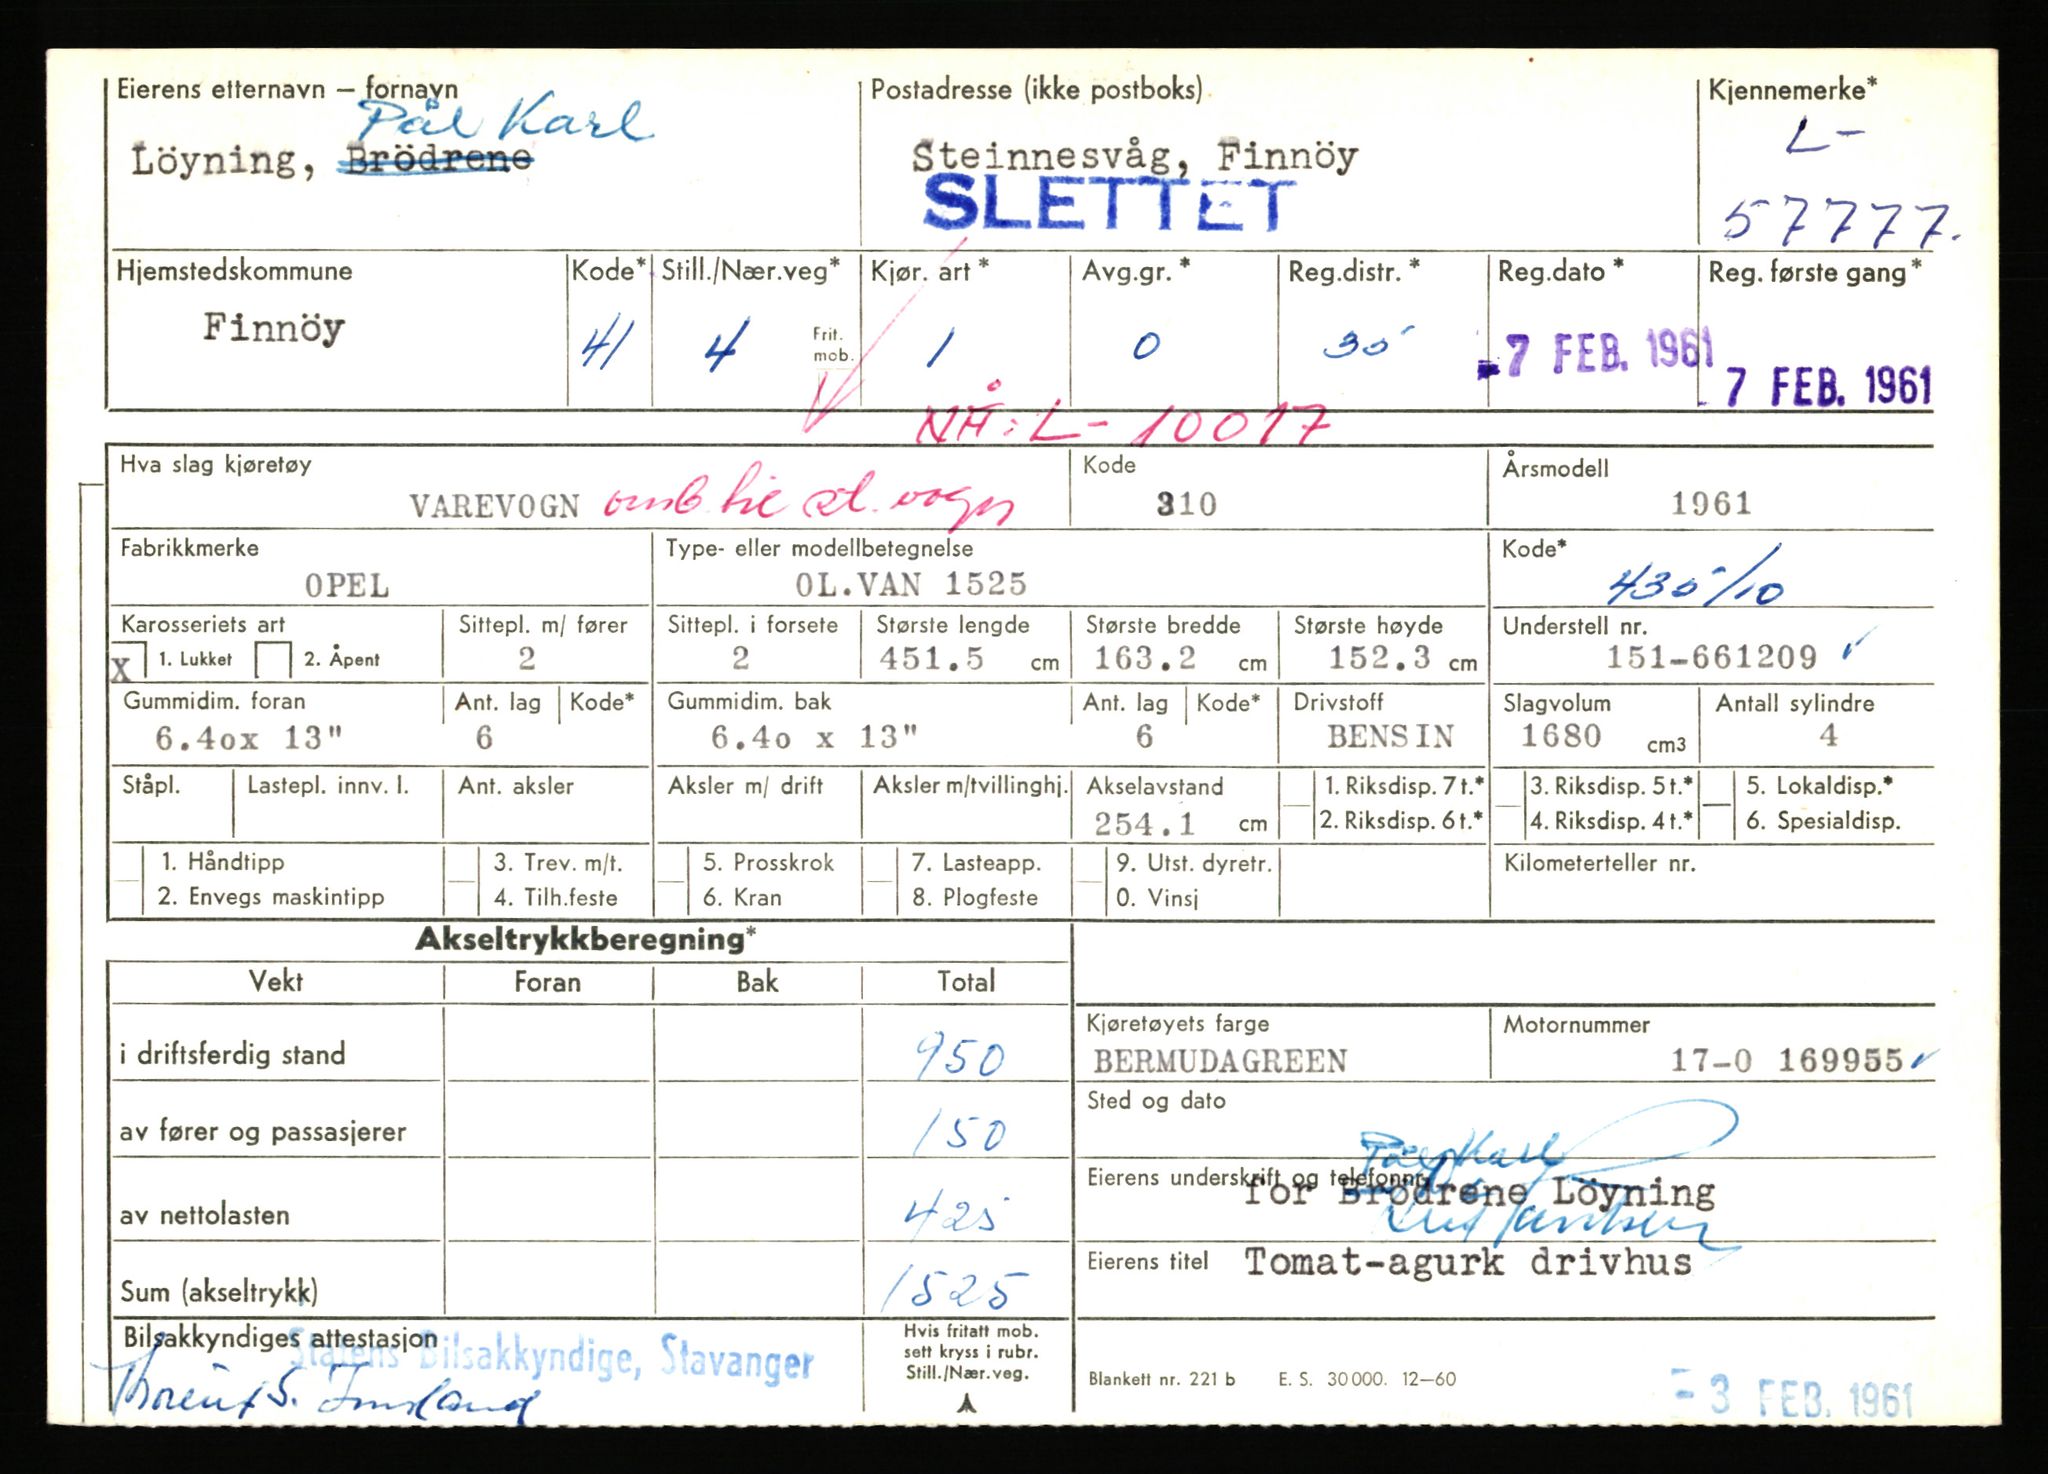 Eierens etternavn – fornavn
Pål Karl
Löyning, Brödrene
Postadresse (ikke postboks)
Steinnesvåg, Finnöy
SLETTET
Kjennemerke*
L-
57777.
Hjemstedskommune
Finnöy
Kode*
41
Still./Nær.veg*
4
Frit. mob.
Kjør. art*
1
Avg.gr.*
0
Reg.distr.*
35
Reg.dato*
-7 FEB. 1961
Reg. første gang*
7 FEB. 1961
NÅ: L- 10017
Hva slag kjøretøy
VAREVOGN omb. til st. vogn
Kode
310
Årsmodell
1961
Fabrikkmerke
OPEL
Type- eller modellbetegnelse
OL.VAN 1525
Kode*
435/10
Karosseriets art
X 1. Lukket 2. Åpent
Sittepl. m/ fører
2
Sittepl. i forsete
2
Største lengde
451.5 cm
Største bredde
163.2 cm
Største høyde
152.3 cm
Understell nr.
151-661209
Gummidim. foran
6.4ox 13"
Ant. lag
6
Kode*
Gummidim. bak
6.4o x 13"
Ant. lag
6
Kode*
Drivstoff
BENSIN
Slagvolum
1680 cm3
Antall sylindre
4
Ståpl.
Lastepl. innv. l.
Ant. aksler
Aksler m/ drift
Aksler m/tvillinghj.
Akselavstand
254.1 cm
1. Riksdisp. 7 t.*
2. Riksdisp. 6 t.*
3. Riksdisp. 5 t.*
4. Riksdisp. 4 t.*
5. Lokaldisp.*
6. Spesialdisp.
1. Håndtipp
2. Envegs maskintipp
3. Trev. m/t.
4. Tilh.feste
5. Prosskrok
6. Kran
7. Lasteapp.
8. Plogfeste
9. Utst. dyretr.
0. Vinsj
Kilometerteller nr.
Akseltrykkberegning*
Vekt Foran Bak Total
i driftsferdig stand 950
av fører og passasjerer 150
av nettolasten 425
Sum (akseltrykk) 1525
Kjøretøyets farge
BERMUDAGREEN
Motornummer
17-0 169955
Sted og dato
Pål Karl
Eierens underskrift og telefonnr.
for Brödrene Löyning
Eierens titel Tomat-agurk drivhus
Bilsakkyndiges attestasjon
Statens Bilsakkyndige, Stavanger
Hvis fritatt mob.
sett kryss i rubr.
Still./Nær.veg.
Blankett nr. 221 b E. S. 30 000. 12–60
-3 FEB. 1961